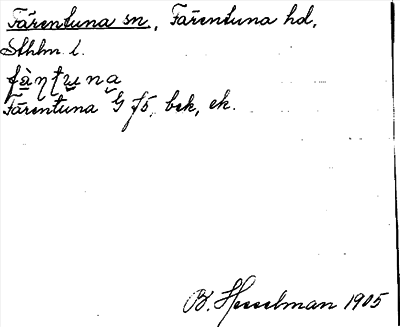 Färentuna sn, Färentuna hd,
Sthlm l.
fà̤ɳʈu̯na̤
Färentuna G f5, bek, ek.
B. Hesselman 1905